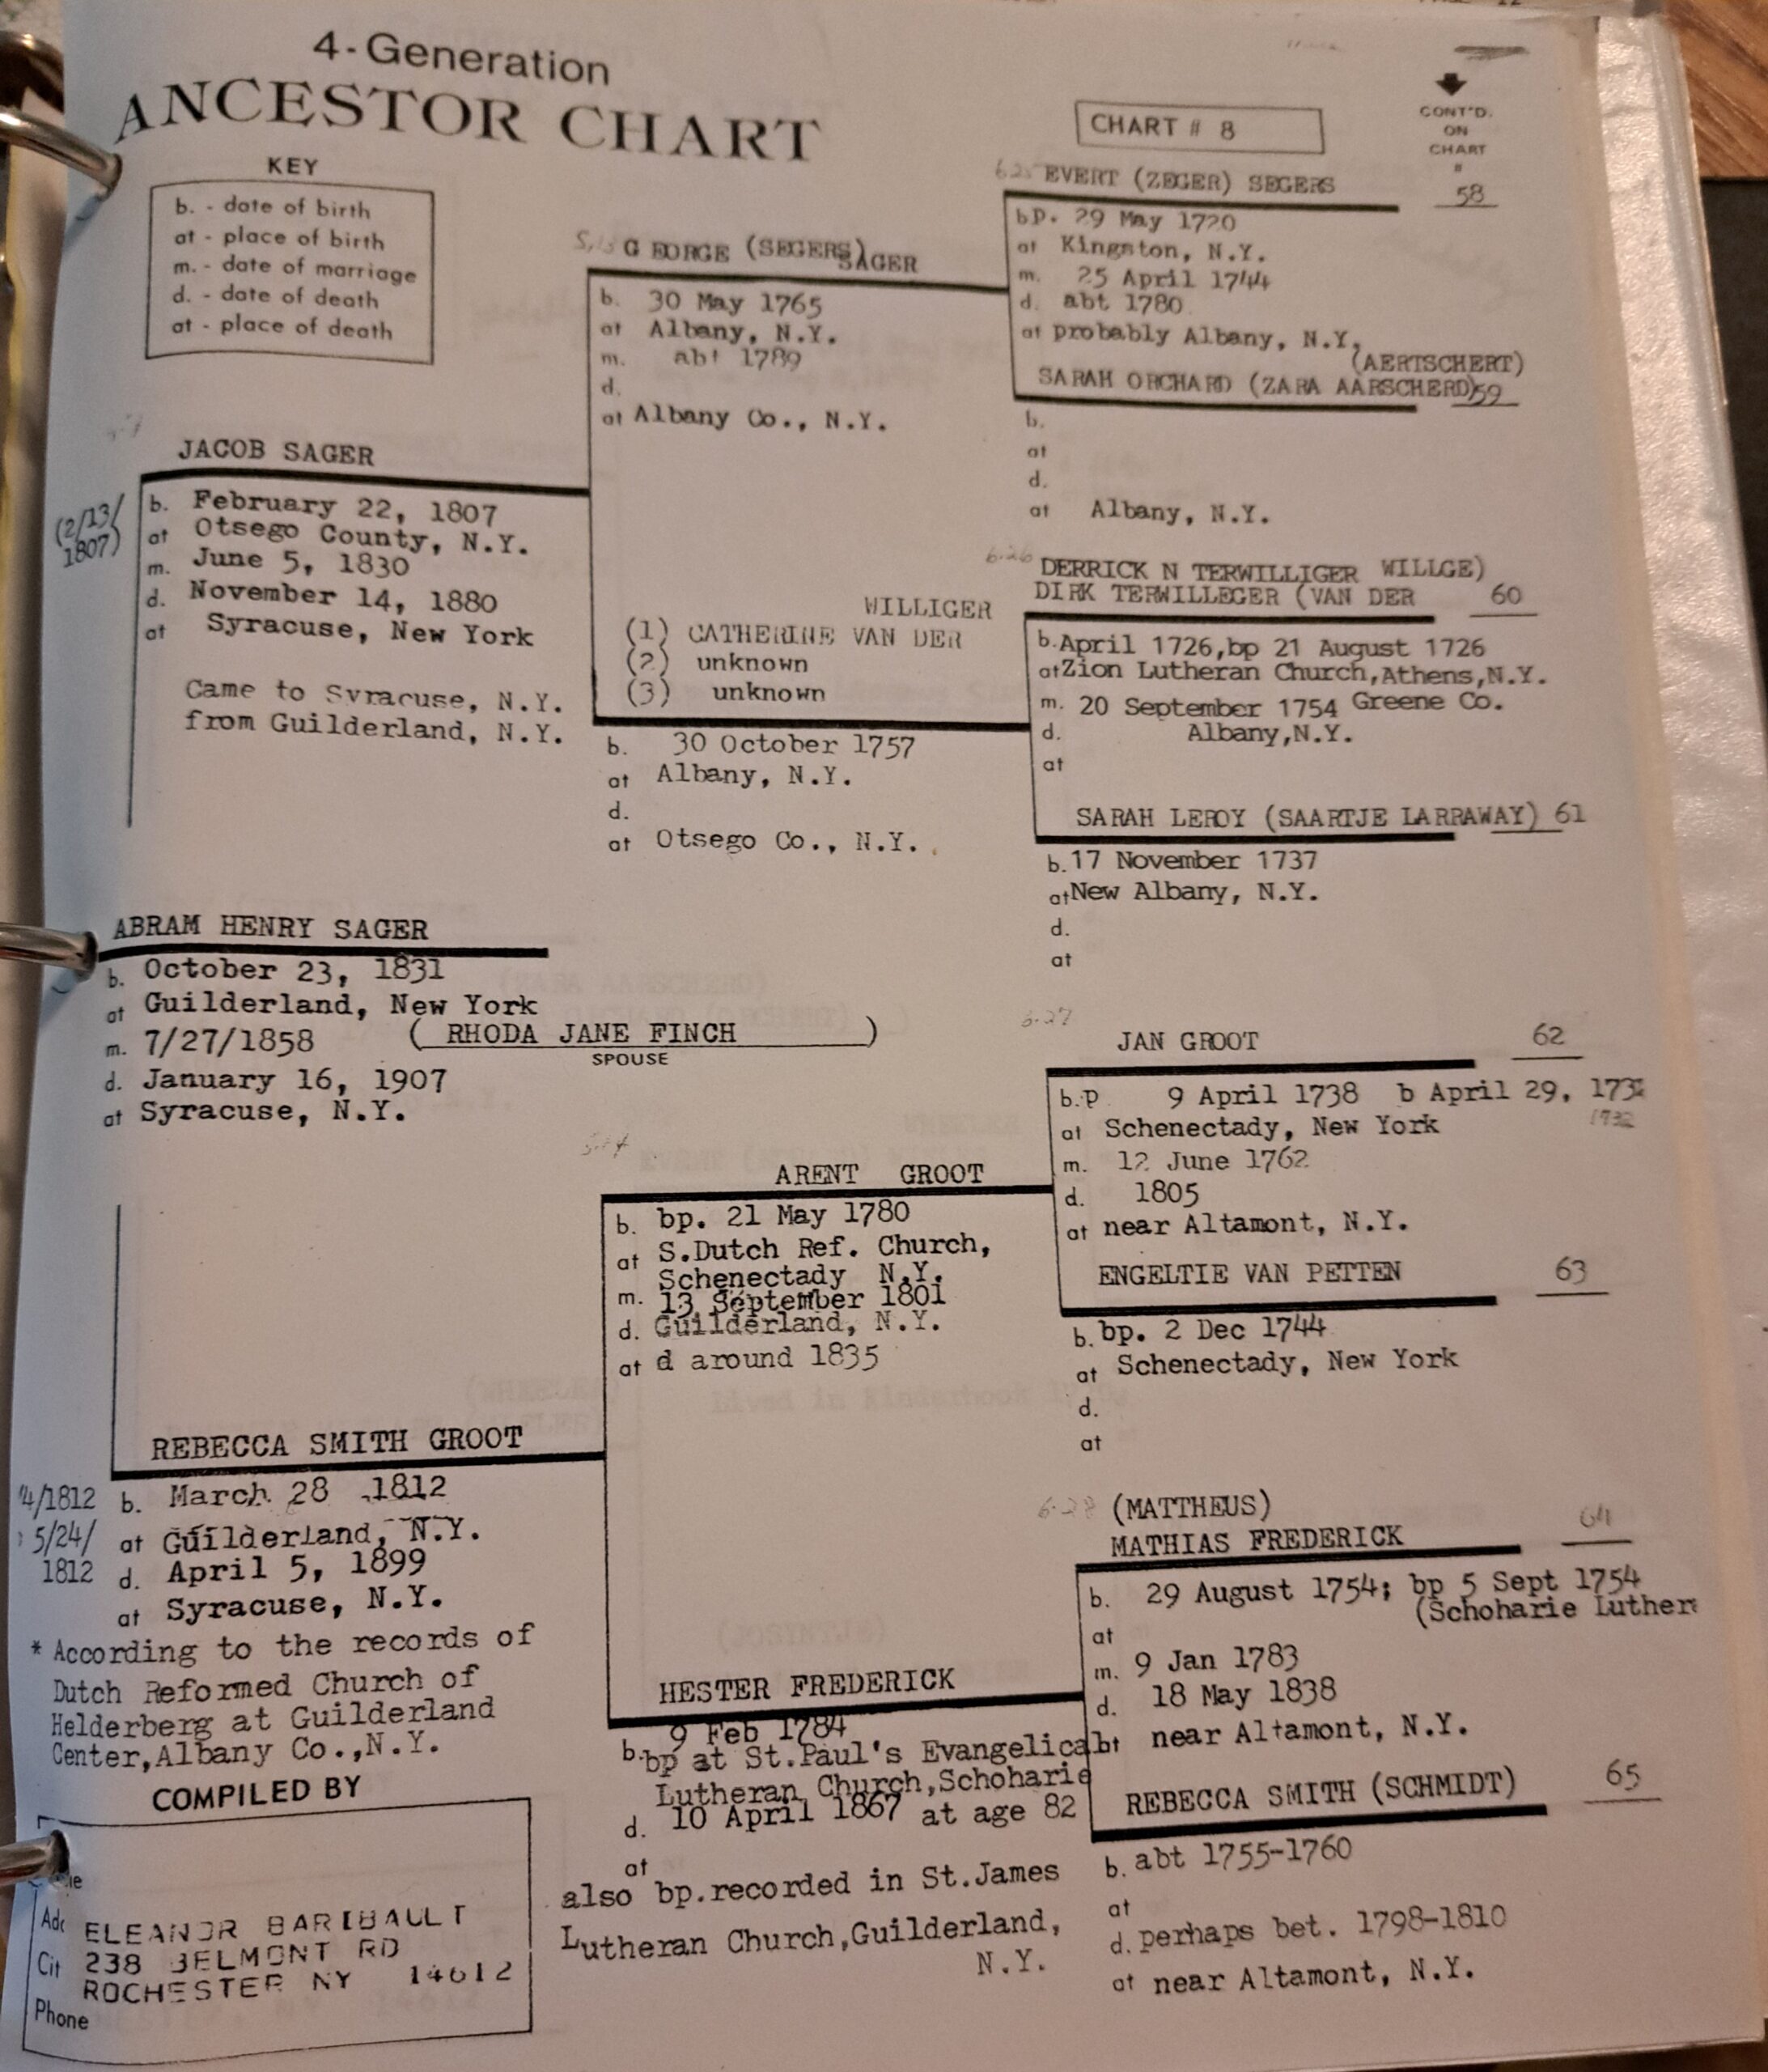 4-Generation
ANCESTOR CHART
KEY
b. - date of birth
at - place of birth
m. - date of marriage
d. - date of death
at - place of death
CHART # 8
CONT'D.
ON
CHART
#
6.25 EVERT (ZEGER) SEGERS 58
bp. 29 May 1720
at Kingston, N.Y.
m. 25 April 1744
d. abt 1780
at probably Albany, N.Y.
(AERTSCHERT)
SARAH ORCHARD (ZARA AARSCHERD) 59
b.
at
d.
at Albany, N.Y.
5.13 GEORGE (SEGERS) SAGER
b. 30 May 1765
at Albany, N.Y.
m. abt 1789
d.
at Albany Co., N.Y.
JACOB SAGER
(2/13/
1807)
b. February 22, 1807
at Otsego County, N.Y.
m. June 5, 1830
d. November 14, 1880
at Syracuse, New York
Came to Syracuse, N.Y.
from Guilderland, N.Y.
WILLIGER
(1) CATHERINE VAN DER
(2) unknown
(3) unknown
b. 30 October 1757
at Albany, N.Y.
d.
at Otsego Co., N.Y.
6.26 DERRICK N TERWILLIGER WILLGE)
DIRK TERWILLEGER (VAN DER 60
b. April 1726, bp 21 August 1726
at Zion Lutheran Church, Athens, N.Y.
m. 20 September 1754 Greene Co.
d. Albany, N.Y.
at
SARAH LEROY (SAARTJE LARRAWAY) 61
b. 17 November 1737
at New Albany, N.Y.
d.
at
ABRAM HENRY SAGER
b. October 23, 1831
at Guilderland, New York
m. 7/27/1858 ( RHODA JANE FINCH )
SPOUSE
d. January 16, 1907
at Syracuse, N.Y.
6.27
JAN GROOT 62
b.p 9 April 1738 b April 29, 173
1732
at Schenectady, New York
m. 12 June 1762
d. 1805
at near Altamont, N.Y.
ENGELTIE VAN PETTEN 63
b. bp. 2 Dec 1744
at Schenectady, New York
d.
at
5.14
ARENT GROOT
b. bp. 21 May 1780
at S.Dutch Ref. Church,
Schenectady N.Y.
m. 13 September 1801
d. Guilderland, N.Y.
at d around 1835
REBECCA SMITH GROOT
4/1812
5/24/
1812
b. March 28 1812
at Guilderland, N.Y.
d. April 5, 1899
at Syracuse, N.Y.
* According to the records of
Dutch Reformed Church of
Helderberg at Guilderland
Center, Albany Co., N.Y.
6.28 (MATTHEUS) 64
MATHIAS FREDERICK
b. 29 August 1754; bp 5 Sept 1754
(Schoharie Luther
at
m. 9 Jan 1783
d. 18 May 1838
at near Altamont, N.Y.
REBECCA SMITH (SCHMIDT) 65
b. abt 1755-1760
at
d. perhaps bet. 1798-1810
at near Altamont, N.Y.
HESTER FREDERICK
9 Feb 1784
b. bp at St.Paul's Evangelical
Lutheran Church, Schoharie
d. 10 April 1867 at age 82
at
also bp.recorded in St.James
Lutheran Church, Guilderland,
N.Y.
COMPILED BY
ELEANOR BARIBAULT
Cit 238 BELMONT RD
ROCHESTER NY 14612
Phone